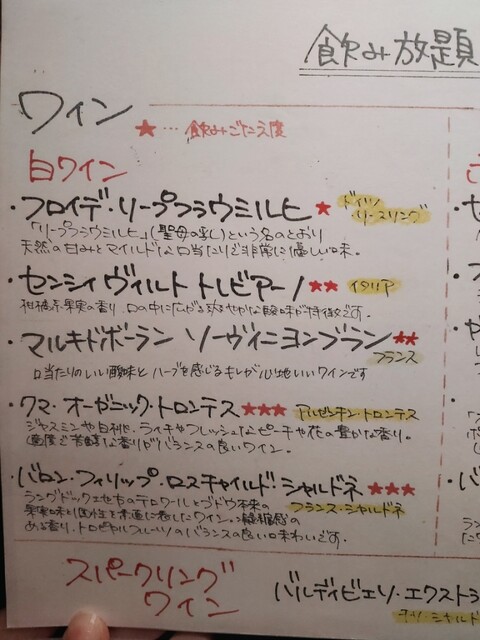 飲み放題
ワイン
★…飲みごたえ度
白ワイン
・フロイデ・リープフラウミルヒ ★ ドイツ リースリング
「リープフラウミルヒ」(聖母の乳)という名のとおり
天然の甘みとマイルドな口当たりで非常に優しい味。
・センシィ ヴィルト トレビアーノ ★★ イタリア
柑橘系果実の香り。口の中に広がる爽やかな酸味が特徴です。
・マルキドボーラン ソーヴィニヨンブラン ★★
フランス
口当たりのいい酸味とハーブを感じるキレが心地いいワインです
・クマ・オーガニック・トロンテス ★★★ アルゼンチン・トロンテス
ジャスミンや白桃、ライチやフレッシュなピーチや花の豊かな香り。
適度で芳醇な香りがバランスの良いワイン。
・バロン・フィリップ・ロスチャイルド シャルドネ ★★★
フランス・シャルドネ
ラングドックのテロワールと本来の
果実味と個性を表したワイン。凝縮感の
ある香り、トロピカルフルーツのバランスの良い味わいです。
スパークリング
ワイン
バルディビエソ・エクストラ
チリ シャルド